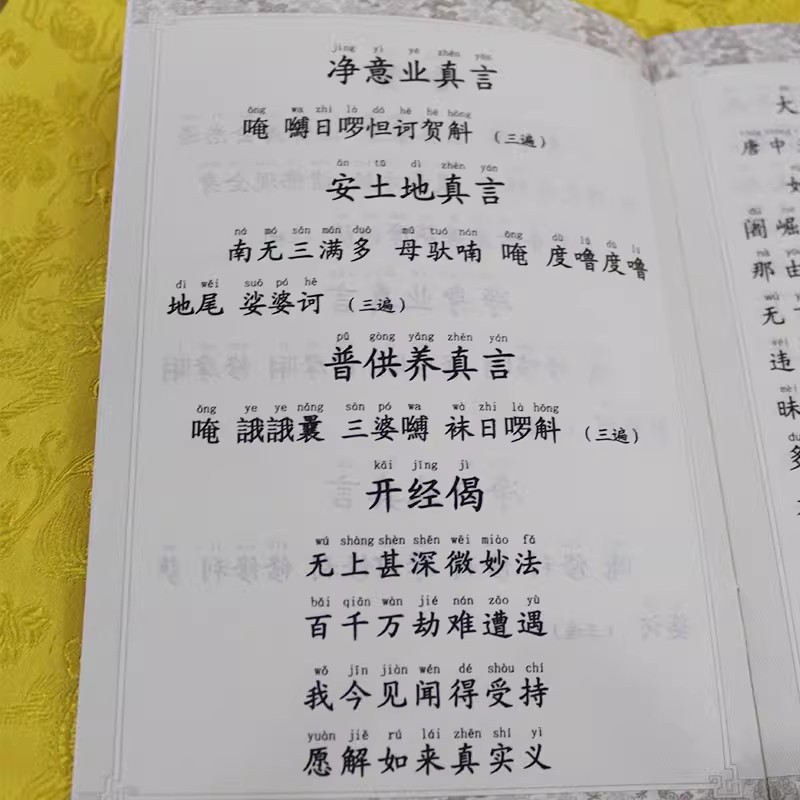 jìng yì yè zhēn yán
净意业真言
ōng wa zhi là dá hē hè hōng
唵 嚩日啰怛诃贺斛 (三遍)
ān tǔ dì zhēn yán
安土地真言
ná mó sān mǎn duō mǔ tuó nán ōng dù lǔ dù lǔ
南无三满多 母驮喃 唵 度噜度噜
dì wěi suō pó hē
地尾 娑婆诃 (三遍)
pǔ gòng yǎng zhēn yán
普供养真言
ōng ye ye nǎng sān pó wa wà zhi là hōng
唵 誐誐曩 三婆嚩 袜日啰斛 (三遍)
kāi jīng jì
开经偈
wú shàng shèn shēn wēi miào fǎ
无上甚深微妙法
bǎi qiān wàn jié nán zāo yù
百千万劫难遭遇
wǒ jīn jiàn wén dé shòu chí
我今见闻得受持
yuàn jiě rú lái zhēn shí yì
愿解如来真实义
大
唐中
阇崛
那由
无
违
昧
多